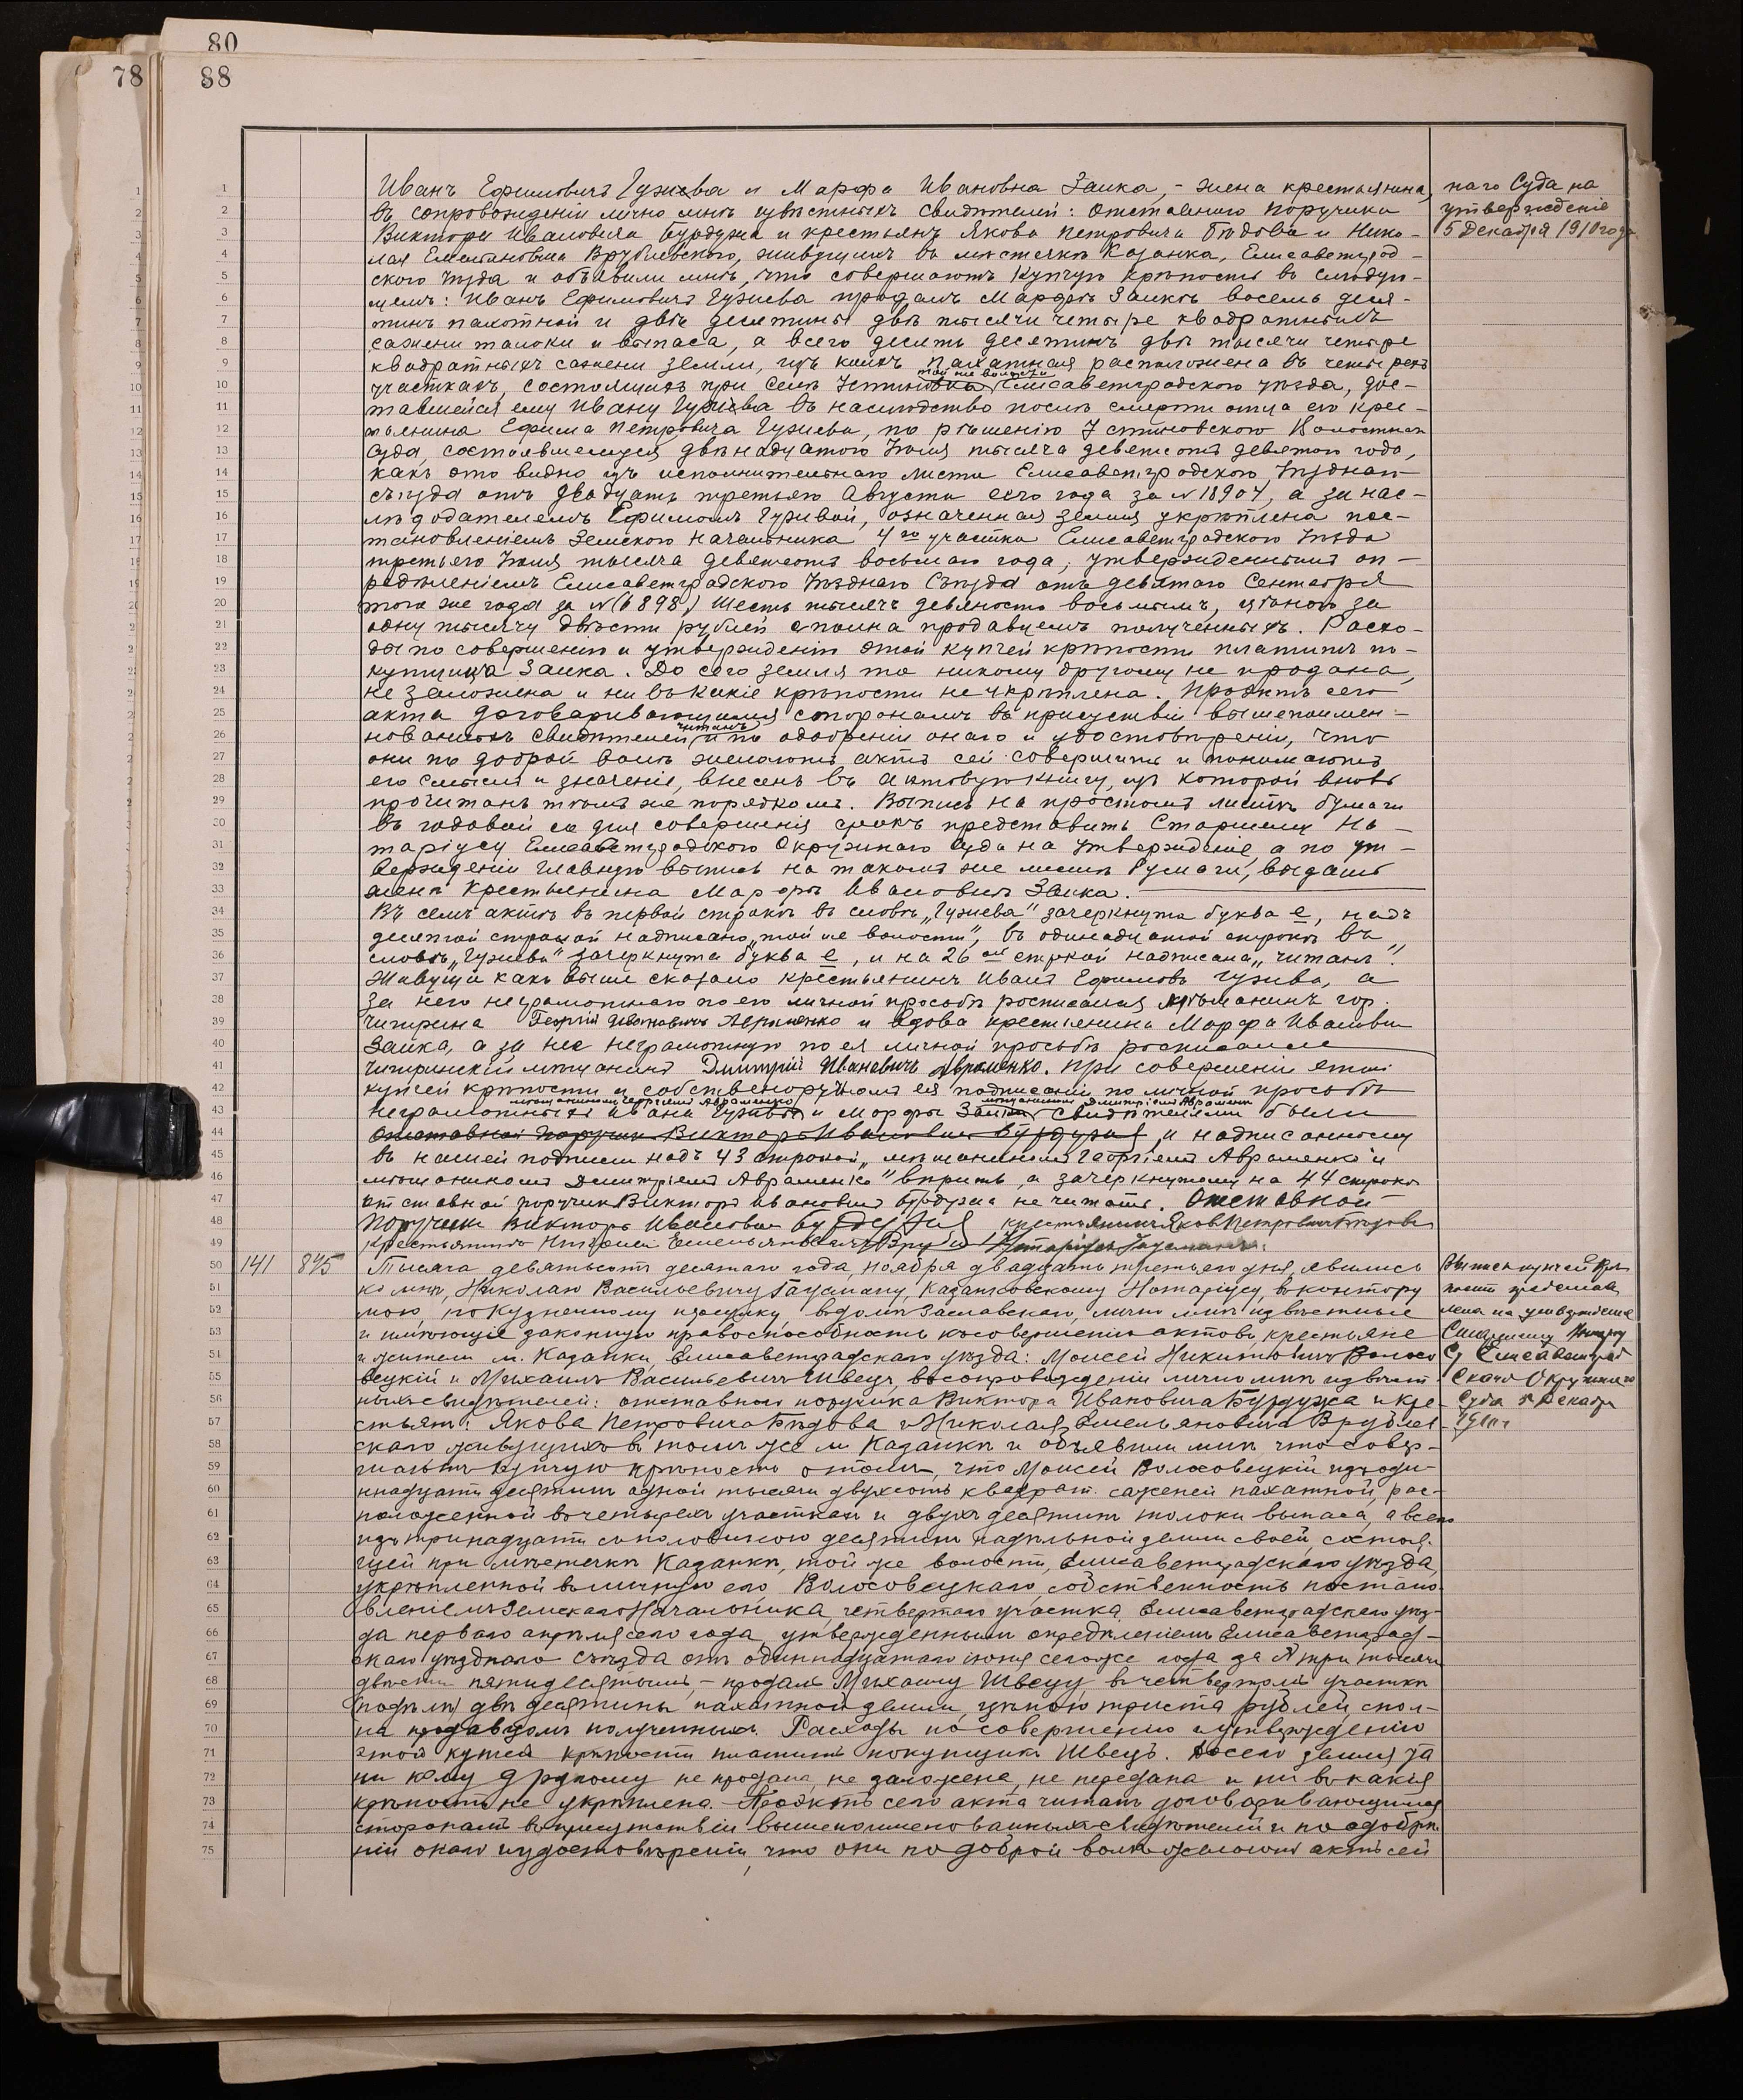 80
78 88
Иванъ Ефимовичъ Гужева и Марфа Ивановна Заика, - жена крестьянина,
въ сопровожденіи лично мнѣ извѣстныхъ свидѣтелей: отставного поручика
Виктора Ивановича Бурдужа и крестьянъ Якова Петровича Бѣдова и Нико-
лая Емельяновича Врублевского, живущихъ въ мѣстечкѣ Казанка, Елисаветград-
ского уѣзда и объявили мнѣ, что совершаютъ купчую крѣпость въ слѣдую-
щемъ: Иванъ Ефимовичъ Гужева продалъ Марфѣ Заикѣ восемь деся-
тинъ пахотной и двѣ десятины двѣ тысячи четыре квадратныхъ
сажени толоки и выпаса, а всего десять десятинъ двѣ тысячи четыре
квадратныхъ сажени земли, изъ коихъ пахатная расположена въ четырехъ
той же волости
участкахъ, состоящихъ при селѣ Устиновка Елисаветградского уѣзда, дос-
тавшейся ему Ивану Гужева въ наслѣдство послѣ смерти отца его крес-
тьянина Ефима Петровича Гужева, по рѣшенію Устиновского Волостнаго
Суда, состоявшемуся двѣнадцатого Іюля тысяча девятьсотъ девятого года,
какъ это видно изъ исполнительнаго листа Елисаветградского Уѣзднаго
съѣзда отъ двадцать третьяго Августа сего года за № 18904, а за нас-
лѣдодателемъ Ефимомъ Гужвой, означенная земля укрѣплена пос-
тановленіемъ Земского Начальника 4го участка Елисаветградского Уѣзда
третьего Іюля тысяча девятьсотъ восьмого года, утвержденнымъ оп-
редѣленіемъ Елисаветградского Уѣзднаго Съѣзда отъ девятаго Сентября
того же года за № (6898) шесть тысячъ девяность восьмымъ, цѣною за
одну тысячу двѣсти рублей сполна продавцемъ полученныхъ. Расхо-
ды по совершенію и утвержденію этой купчей крѣпости платитъ по-
купщица Заика. До сего земля та никому другому не продана,
не заложена и ни въ какіе крѣпости не укрѣплена. Проэктъ сего
акта договаривающимся сторонамъ въ присуствіи вышепоимен-
читанъ
нованныхъ свидѣтелей и по одобреніи онаго и удостовѣреніи, что
они по доброй волѣ желаютъ актъ сей совершить и понимаютъ
его смыслъ и значеніе, внесенъ въ актовую книгу, изъ которой вновь
прочитанъ тѣмъ же порядкомъ. Выпись на простомъ листѣ бумаги
въ годовой со дня совершенія срокъ представить Старшему Но-
таріусу Елисаветградского Окружнаго Суда на утвержденіе, а по ут-
вержденіи главную выпись на такомъ же листѣ бумаги, выдать
женѣ крестьянина Марфѣ Ивановнѣ Заика.
Въ семъ актѣ въ первой строкѣ въ словѣ „Гужева" зачеркнута буква е, надъ
десятой строкой надписано „той же волости", въ одинадцатой строкѣ въ
словѣ „Гужева" зачеркнута буква е, и на 26ой строкой надписана „читанъ".
Живущій какъ выше сказано крестьянинъ Иванъ Ефимовъ Гужва, а
за него неграмотнаго по его личной просьбѣ росписался мѣщанинъ гор.
Чигирина Георгій Ивановичъ Авраменко и вдова крестьянина Марфа Ивановна
Заика, а за нее неграмотную по ея личной просьбѣ росписался
Чигиринскій мѣщанинъ Димитрій Ивановичъ Авраменко. При совершеніи этой
купчей крѣпости и собственоручномъ ея подписаніи по личной просьбѣ
мѣщаниномъ Георгіемъ Авраменко мѣщаниномъ Димитріемъ Авраменко
неграмотныхъ Ивана Гужвы и Марфы Заика свидѣтелями были
Отставной поручикъ Викторъ Ивановичъ Бурдужа, и надписанному
въ нашей подписи надъ 43 строкой „мѣщаниномъ Георгіемъ Авраменко" и
мѣщаниномъ Димитріемъ Авраменко" вѣрить, а зачеркнутому на 44 строкѣ
отставной поручикъ Викторъ Ивановичъ Бурдужа не читать. Отставной
поручикъ Викторъ Ивановичъ Бурдужа крестьянинъ Яковъ Петровичъ Бѣдовъ
Крестьянинъ Николай Емельяновичъ Нотаріусъ Гауеманъ.
141 845 Тысяча девятьсотъ десятаго года, ноября двадцать третьяго дня, явились
ко мнѣ, Николаю Васильевичу Гауеману, Казанковскому Нотаріусу, въ контору
мою, по Кузнечному переулку, въ домѣ Заславскаго, лично мнѣ извѣстные
и имѣющіе законную правоспособность къ совершенію актовъ, крестьяне
и жители м. Казанки, Елисаветградскаго уѣзда: Моисей Никитовичъ Волосо-
вецкій и Михаилъ Васильевичъ Швецъ, въ сопровожденіи лично мнѣ извѣст-
ныхъ свидѣтелей: отставного поручика Виктора Ивановича Бурдужа и кре-
стьянъ: Якова Петровича Бѣдова и Николая Емельяновича Врублев-
скаго живущихъ въ томъ же м. Казанкѣ и объявили мнѣ что совер-
шаютъ купчую крѣпость о томъ, что Моисей Волосовецкій изъ оди-
ннадцати десятинъ одной тысячи двухсотъ квадрат. саженей пахатной, рас-
положенной въ четырехъ участкахъ и двухъ десятинъ толоки выпаса, а всего
изъ тринадцати съ половиною десятинъ надѣльной земли своей, состоя-
щей при мѣстечкѣ Казанкѣ, той же волости, Елисаветградскаго уѣзда,
укрѣпленной въ личную его Волосовецкаго, собственность постано-
вленіемъ Земскаго Начальника четвертаго участка Елисаветградскаго уѣз-
да перваго апрѣля сего года, утвержденнымъ опредѣленіемъ Елисаветград-
скаго уѣзднаго съѣзда отъ одиннадцатаго іюня сего же года за № три тысячи
двѣсти пятидесятымъ, - продалъ Михаилу Швецу, въ четвертомъ участкѣ
(подѣлѣ) двѣ десятины пахатной земли, цѣною триста рублей, спол-
на продавцомъ полученныхъ. Расходы по совершенію и утвержденію
этой купчей крѣпости платитъ покупщикъ Швецъ. До сего земля та
ни кому другому не продана, не заложена, не передана и ни въ какія
крѣпости не укрѣплена. Проэктъ сего акта читанъ договаривающимся
сторонамъ въ присутствіи вышепоименованныхъ свидѣтелей и по одобре-
ніи онаго и удостовѣреніи, что они по доброй волѣ желаютъ актъ сей
наго Суда на
утвержденіе
5 Декабря 1910 года
Выпись купчей крѣ-
пости представ
лена на утвержденіе
Старшему Нотаріу
су Елисаветград
скаго Окружнаго
Суда 5 Декабря
1910 г